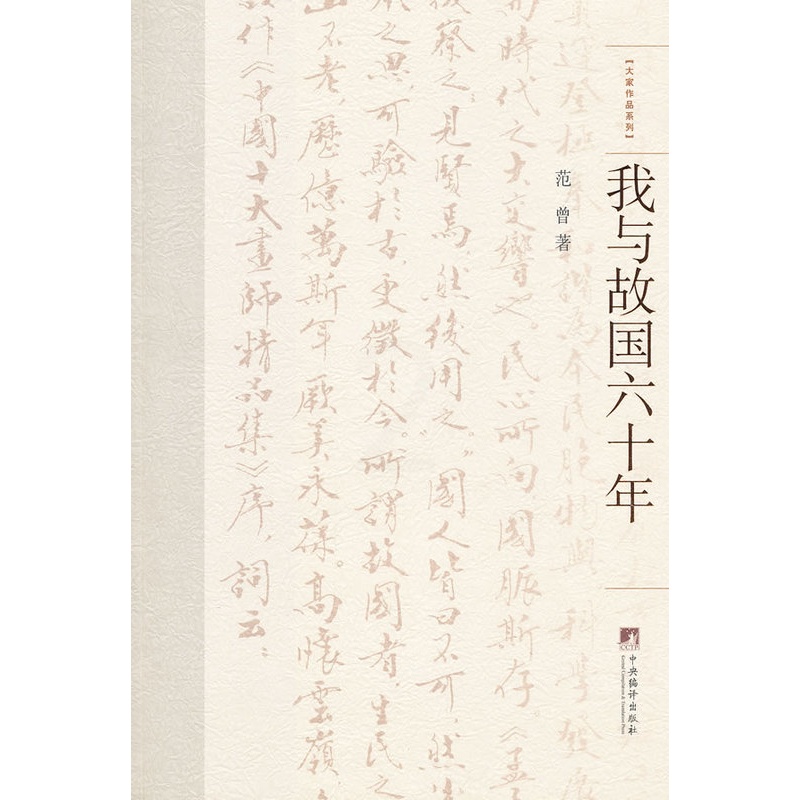 【大家作品系列】
我与故国六十年
范曾 著
CCTP
中央编译出版社
Central Compilation & Translation Press
登極
為本民族
與科學發展
而時代之大交響也。民心所向，國脈斯存。《孟
後察之；見賢焉，然後用之。”“國人皆曰不可，然
之思，可驗於古，更徵於今。所謂故國者，生民之
不老，歷億萬斯年，厥美永葆。高懷雲嶺
作《中國十大畫師精品集》序，詞云：